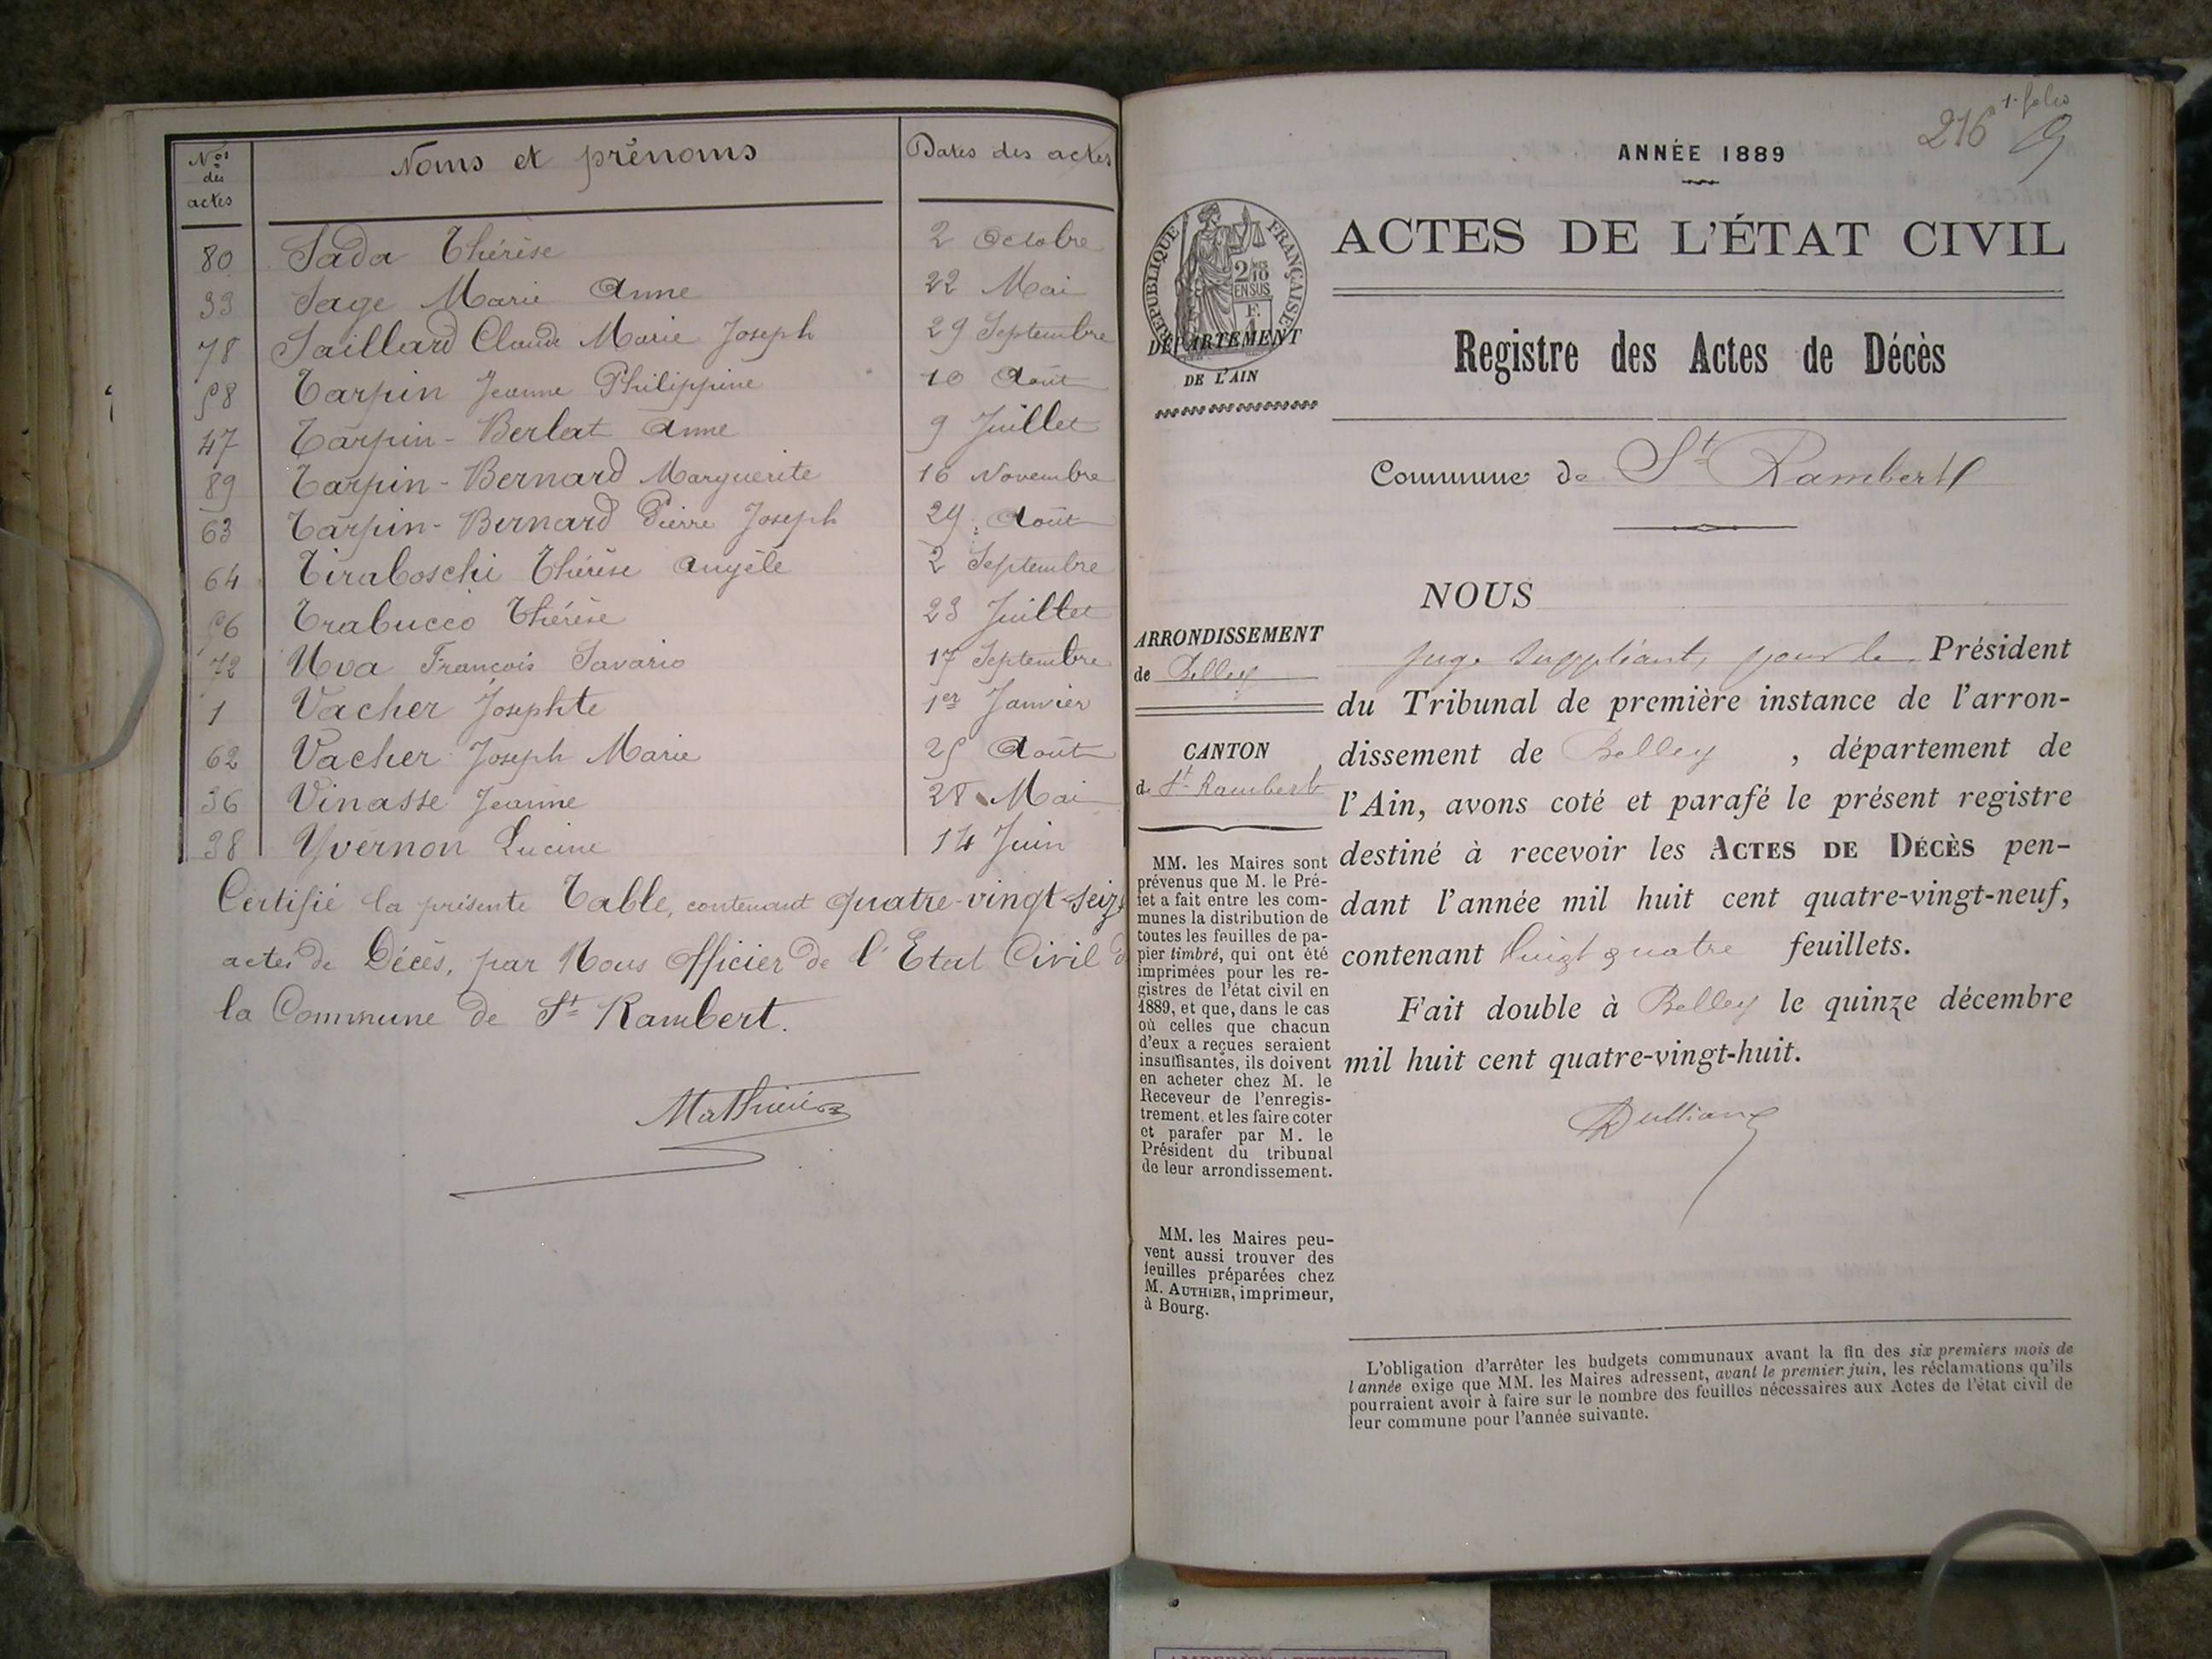 Nos des actes
Noms et prénoms
Dates des actes
80 Sada Thérèse 2 Octobre
33 Sage Marie Anne 22 Mai
78 Saillard Claude Marie Joseph 29 Septembre
58 Tarpin Jeanne Philippine 10 Août
47 Tarpin-Berlat Anne 9 Juillet
89 Tarpin-Bernard Marguerite 16 Novembre
63 Tarpin-Bernard Pierre Joseph 29 Août
64 Tiraboschi Thérèse Angèle 2 Septembre
56 Trabucco Thérèse 23 Juillet
72 Uva François Savario 17 Septembre
1 Vacher Josephte 1er Janvier
62 Vacher Joseph Marie 25 Août
36 Vinasse Jeanne 28 Mai
38 Yvernon Lucine 14 Juin
Certifié la présente Table, contenant quatre-vingt-seize
actes de Décès, par Nous Officier de l'Etat Civil d
la Commune de St Rambert.
216
1er folio
ANNÉE 1889
ACTES DE L'ÉTAT CIVIL
REPUBLIQUE FRANÇAISE
2/10 EN SUS
DÉPARTEMENT
DE L'AIN
Registre des Actes de Décès
Commune de St Rambert
ARRONDISSEMENT
de Belley
CANTON
de St Rambert
MM. les Maires sont
prévenus que M. le Pré-
fet a fait entre les com-
munes la distribution de
toutes les feuilles de pa-
pier timbré, qui ont été
imprimées pour les re-
gistres de l'état civil en
1889, et que, dans le cas
où celles que chacun
d'eux a reçues seraient
insuffisantes, ils doivent
en acheter chez M. le
Receveur de l'enregis-
trement, et les faire coter
et parafer par M. le
Président du tribunal
de leur arrondissement.
MM. les Maires peu-
vent aussi trouver des
feuilles préparées chez
M. AUTHIER, imprimeur,
à Bourg.
NOUS
juge suppléant, pour le Président
du Tribunal de première instance de l'arron-
dissement de Belley , département de
l'Ain, avons coté et parafé le présent registre
destiné à recevoir les ACTES DE DÉCÈS pen-
dant l'année mil huit cent quatre-vingt-neuf,
contenant Vingt quatre feuillets.
Fait double à Belley le quinze décembre
mil huit cent quatre-vingt-huit.
L'obligation d'arrêter les budgets communaux avant la fin des six premiers mois de
l'année exige que MM. les Maires adressent, avant le premier juin, les réclamations qu'ils
pourraient avoir à faire sur le nombre des feuilles nécessaires aux Actes de l'état civil de
leur commune pour l'année suivante.